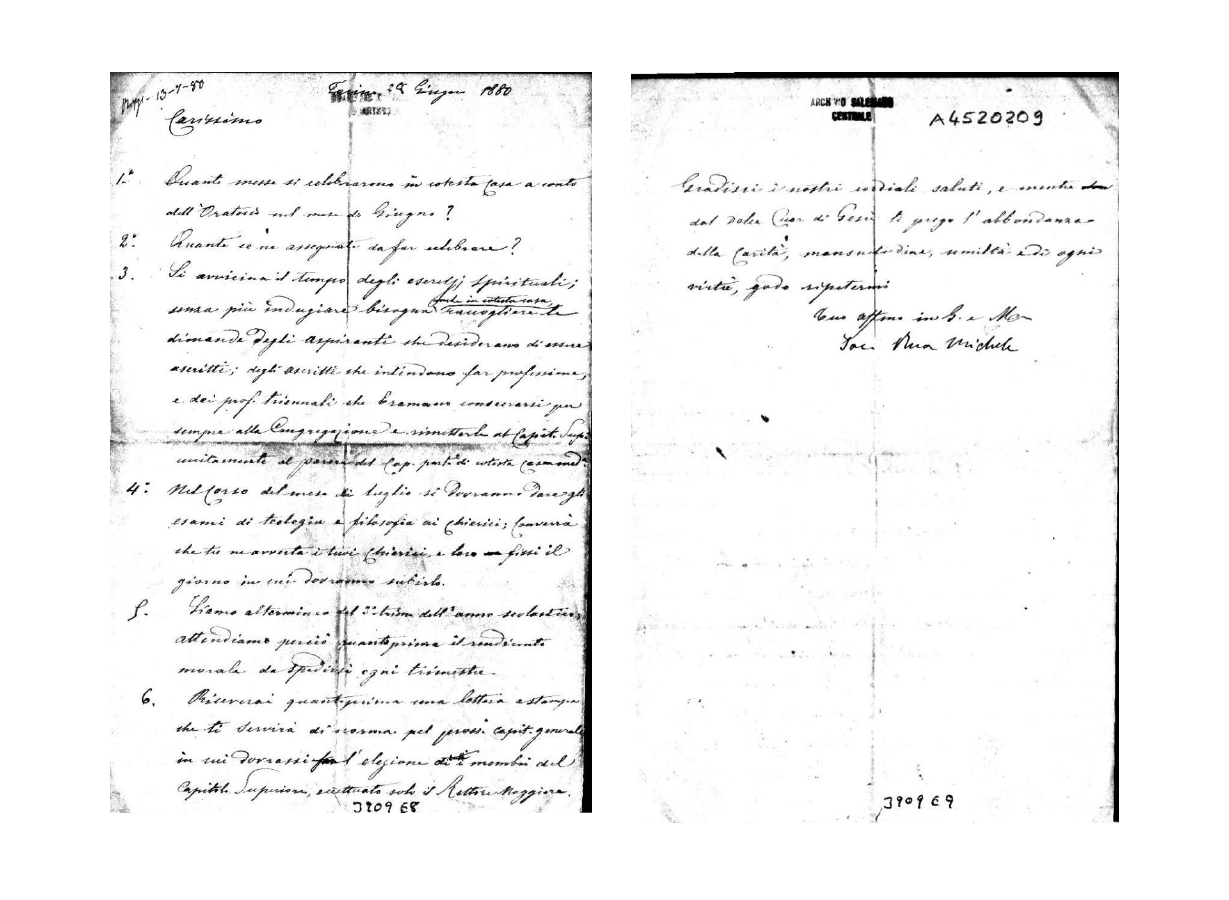 13-7-80
Torino, 28 Giugno 1880
Carissimo
1.° Quante messe si celebrarono in cotesta Casa a conto
dell'Oratorio nel mese di Giugno?
2.° Quante ce ne assegnate da far celebrare?
3. Si avvicina il tempo degli esercizj spirituali;
senza più indugiare bisogna anche in cotesta casa raccogliere le
dimande degli aspiranti che desiderano di essere
ascritti; degli ascritti che intendono far professione,
e dei prof. triennali che bramano consecrarsi per
sempre alla Congregazione e rimetterle al Capit. Sup.
unitamente al parere del Cap. part. di cotesta Casa
4.° Nel Corso del mese di luglio si dovranno dare gli
esami di teologia e filosofia ai Chierici; Converrà
che tu ne avverta i tuoi Chierici, e loro fissi il
giorno in cui dovranno subirlo.
5. Siamo al termine del 3° trim. dell'anno scolastico;
attendiamo perciò quanto prima il rendiconto
morale da spedirsi ogni trimestre.
6. Riceverai quanto prima una lettera a stampa
che ti servirà di norma pel pross. capit. generale
in cui dovrassi far l'elezione di membri del
Capitolo Superiore, eccettuato solo il Rettore Maggiore.
3909 E8
ARCHIVIO SALESIANO
CENTRALE
A4520209
Gradissi i nostri cordiali saluti, e mentre
dal dolce Cuor di Gesù ti prego l'abbondanza
della Carità, mansuetudine, umiltà e di ogni
virtù, godo ripetermi
Tuo affmo in G. e M.
Sac. Rua Michele
3909 E9